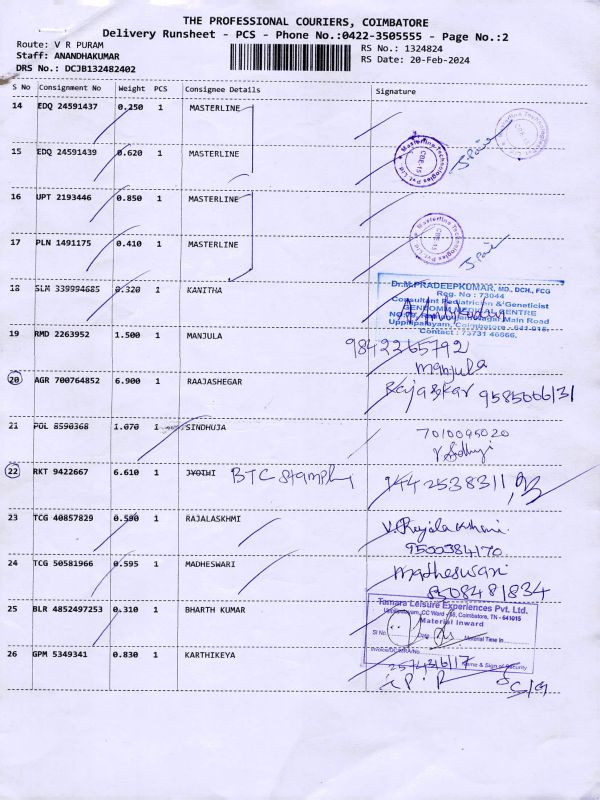 THE PROFESSIONAL COURIERS, COIMBATORE
Delivery Runsheet - PCS - Phone No.:0422-3505555 - Page No.:2
Route: V R PURAM
RS No.: 1324824
Staff: ANANDHAKUMAR
RS Date: 20-Feb-2024
DRS No.: DCJB132482402
S No Consignment No Weight PCS Consignee Details Signature
14 EDQ 24591437 0.250 1 MASTERLINE
Masterline Technologies
15 EDQ 24591439 0.620 1 MASTERLINE
Masterline Technologies Pvt Ltd
CBE-15
16 UPT 2193446 0.850 1 MASTERLINE
17 PLN 1491175 0.410 1 MASTERLINE
Masterline Technologies Pvt Ltd
CBE-15
18 SLM 339994685 0.320 1 KANITHA
Dr.M.PRADEEPKUMAR, MD., DCH., FCG
Reg. No : 73044
Consultant Pediatrician & Geneticist
CENTRE
Main Road
Uppilipalayam, Coimbatore - 641 015.
Contact : 73731 46666.
19 RMD 2263952 1.500 1 MANJULA
9842265792
Manjula
20 AGR 700764852 6.900 1 RAAJASHEGAR
Rajaskar 9585006131
21 POL 8590368 1.070 1 SINDHUJA
7010095020
22 RKT 9422667 6.610 1 JYOTHI BTC
9442538311
23 TCG 40857829 0.590 1 RAJALASKHMI
V. Rajalakhmi.
9500384170
24 TCG 50581966 0.595 1 MADHESWARI
Madheswari
8508481834
25 BLR 4852497253 0.310 1 BHARTH KUMAR
Tamara Leisure Experiences Pvt. Ltd.
Uppilipalayam, CC Ward - 56, Coimbatore, TN - 641015
Material Inward
Sl No Date Material Time in
Invoice/DC/MRA/No Name & Sign of Security
26 GPM 5349341 0.830 1 KARTHIKEYA